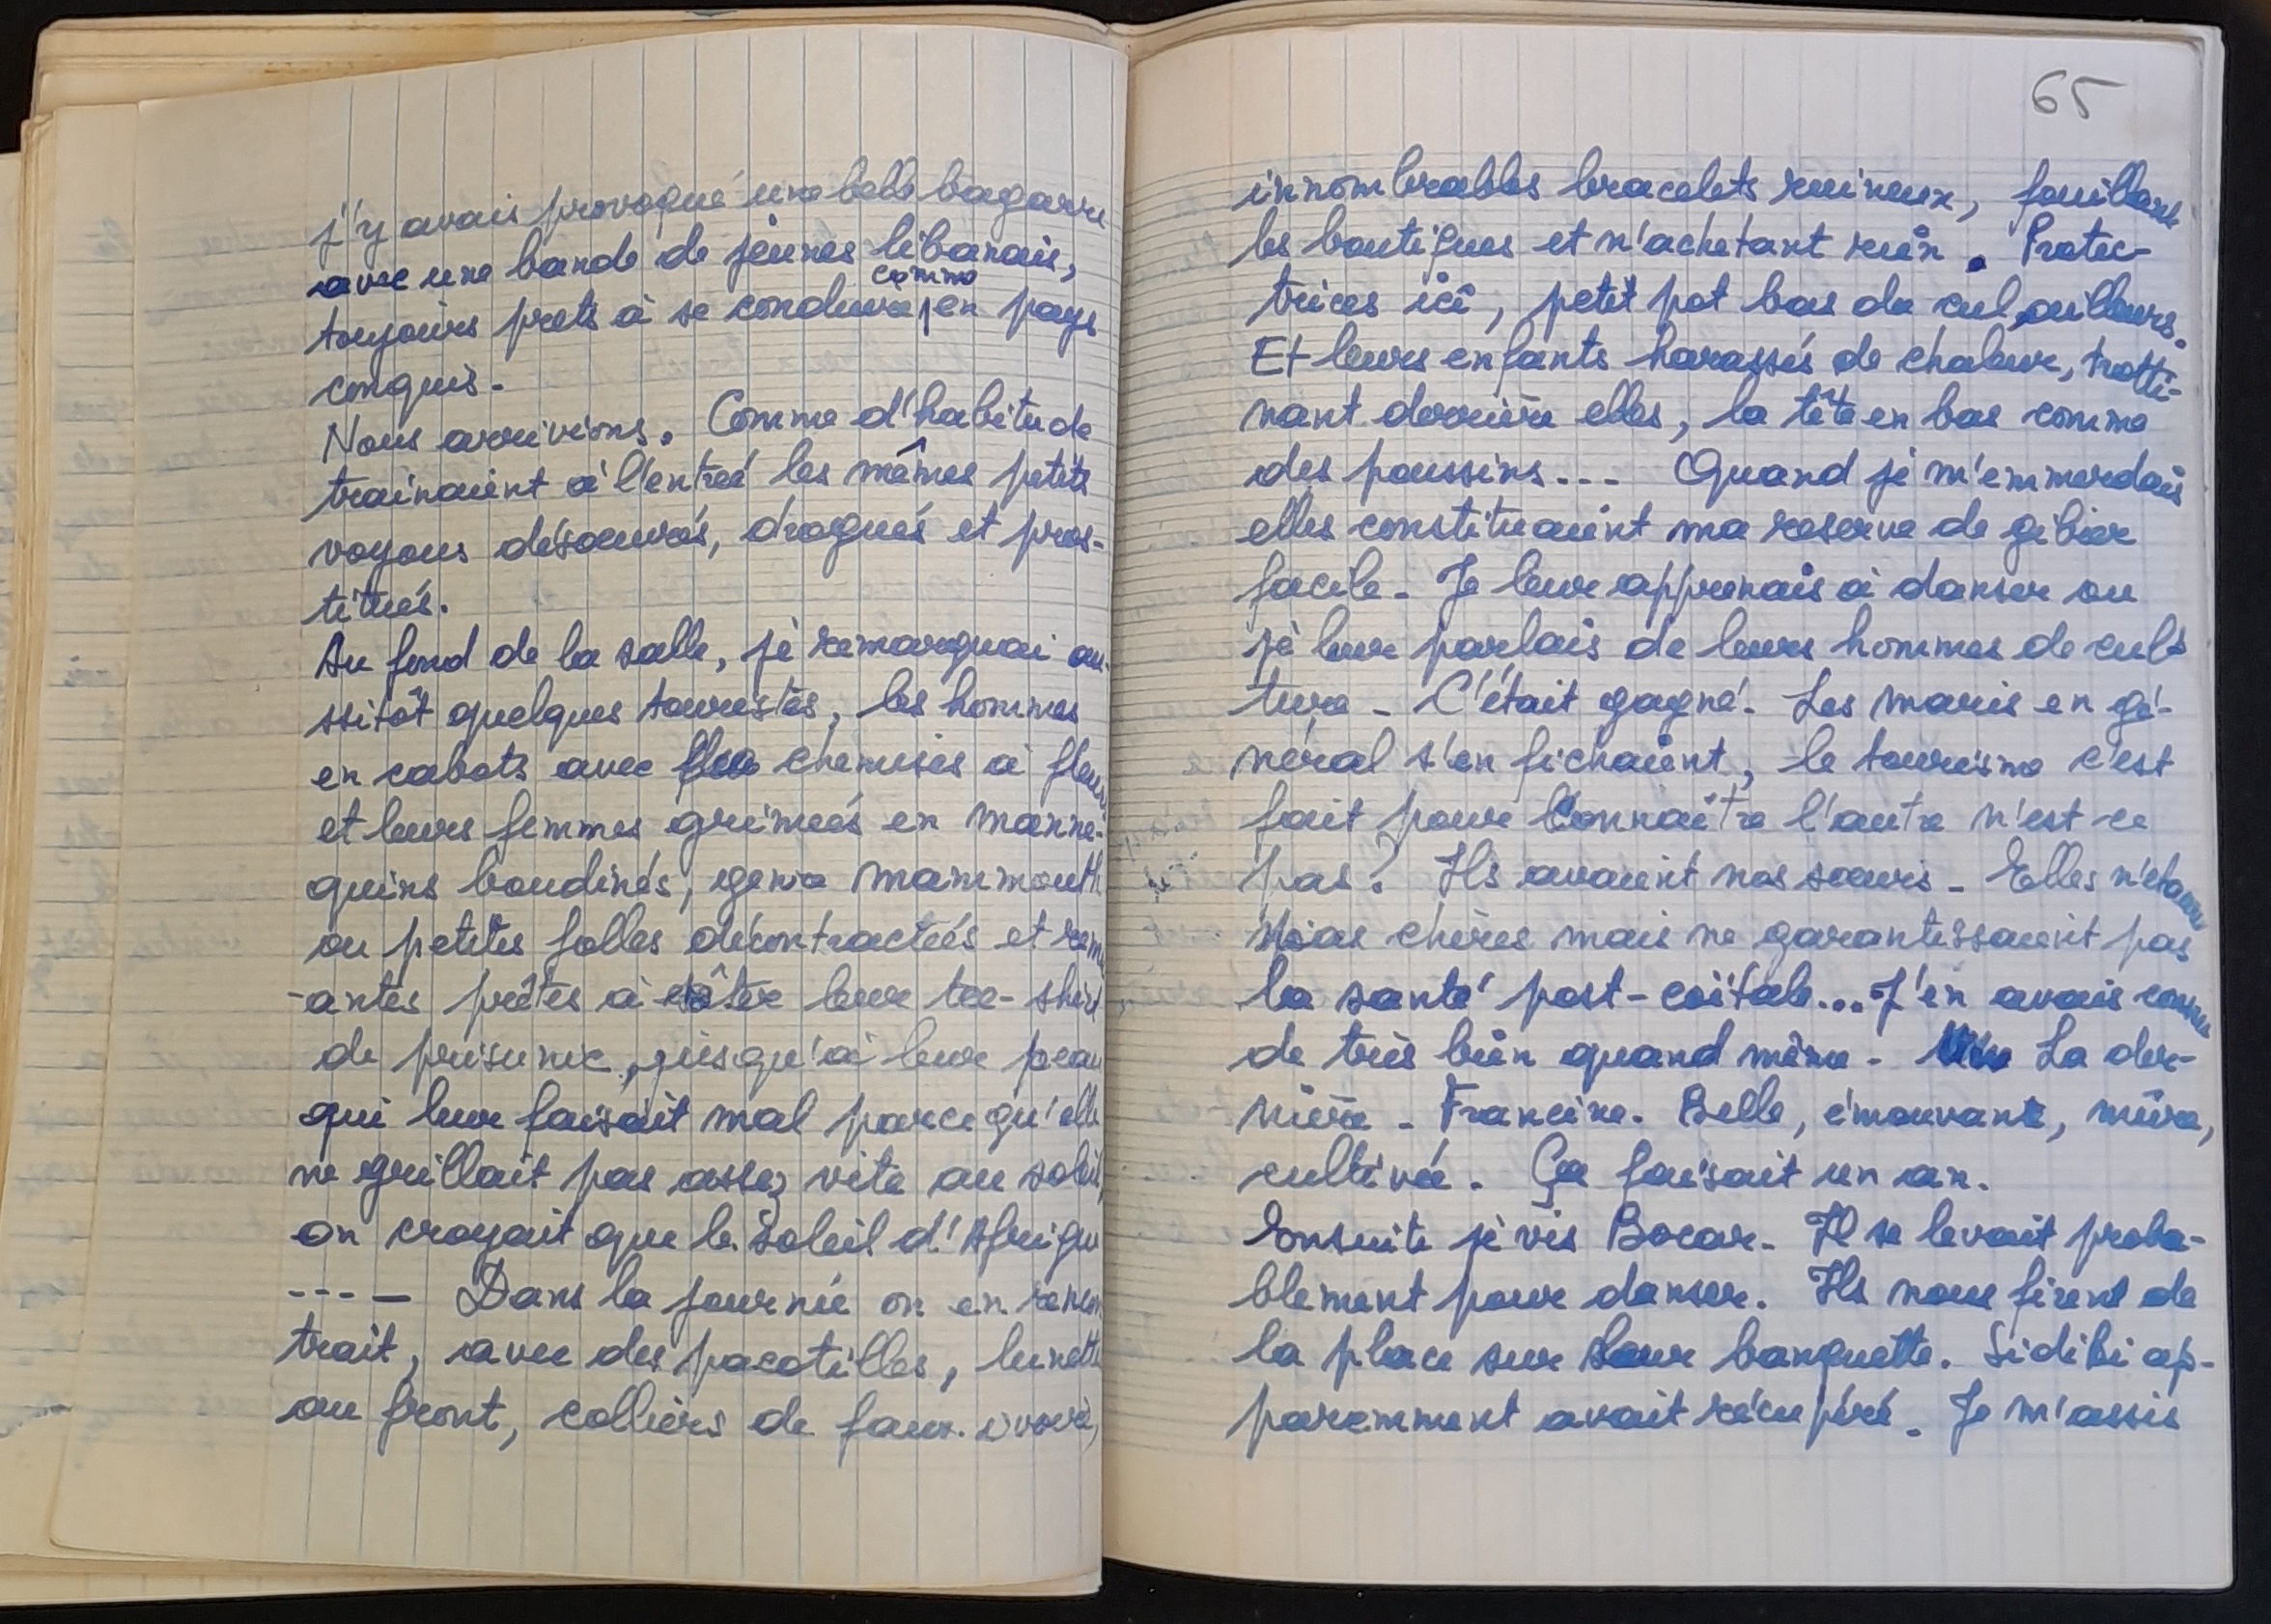 j'y avais provoqué une belle bagarre
avec une bande de jeunes libanais,
comme
toujours prets à se conduire, en pays
conquis.
Nous arrivions. Comme d'habitude
trainaient à l'entrée les mêmes petits
voyous désoeuvrés, drogués et pros-
titués.
Au fond de la salle, je remarquai au-
ssitôt quelques touristes, les hommes
en cabots avec chemises à fleurs
et leurs femmes grimées en manne-
quins boudinés, genre mammouth
ou petites folles décontractées et rem
-antes prêtes à ôter leur tee-shirt
de prisunic, jusqu'à leur peau
qui leur faisait mal parce qu'elle
ne grillait pas assez vite au soleil,
on croyait que le soleil d'Afrique
---- Dans la journée on en rencon
trait, avec des pacotilles, lunettes
au front, colliers de faux ivoire,
65
innombrables bracelets ruineux, fouillant
les boutiques et n'achetant rien. Protec-
trices ici, petit pot bas de cul ailleurs.
Et leurs enfants harassés de chaleur, trotti-
nant derrière elles, la tête en bas comme
des poussins... Quand je m'emmerdais
elles constituaient ma reserve de gibier
facile. Je leur apprenais à danser ou
je leur parlais de leurs hommes de cul-
ture - C'était gagné. Les maris en gé-
néral s'en fichaient, le tourisme c'est
fait pour Connaître l'autre n'est-ce
pas? Ils avaient nos sœurs - Elles n'étaient
pas chères mais ne garantissaient pas
la santé post-coïtale... J'en avais connu
de très bien quand même - La der-
nière - Francine. Belle, émouvante, mûre,
cultivée. Ça faisait un an.
Ensuite je vis Bocar. Il se levait proba-
blement pour danser. Ils nous firent de
la place sur leur banquette. Sidibi ap-
paremment avait récupéré. Je m'assis